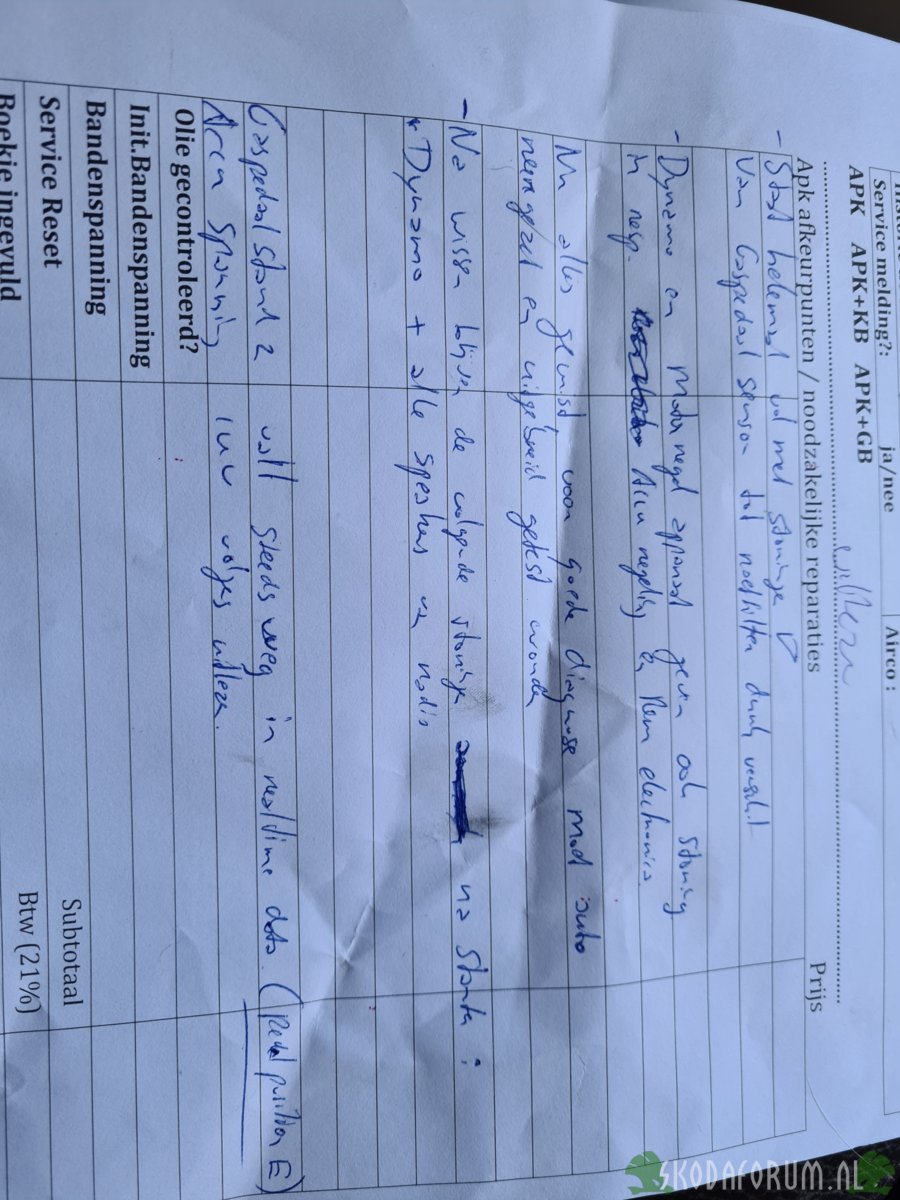 Service melding?: ja/nee Airco :
APK APK+KB APK+GB
Apk afkeurpunten / noodzakelijke reparaties Prijs
- Staat helemaal vol met storingen
van Gaspedaal sensor tot roetfilter druk verschil
- Dynamo en motor regel apparaat geven ook storing
in resp. Accu regeling en Rem electronica.
Nu alles gewist voor goede diagnose moet auto
meegereden en uitgebreid getest worden
- Na wissen blijven de volgende storingen na starten :
* Dynamo + alle speakers van radio
Gaspedaal stand 2 valt steeds weg in realtime data. (Pedal position E)
Accu spanning 14v volgens uitlezen.
Olie gecontroleerd?
Init.Bandenspanning
Bandenspanning Subtotaal
Service Reset Btw (21%)
Boekje ingevuld
SKODAFORUM.NL